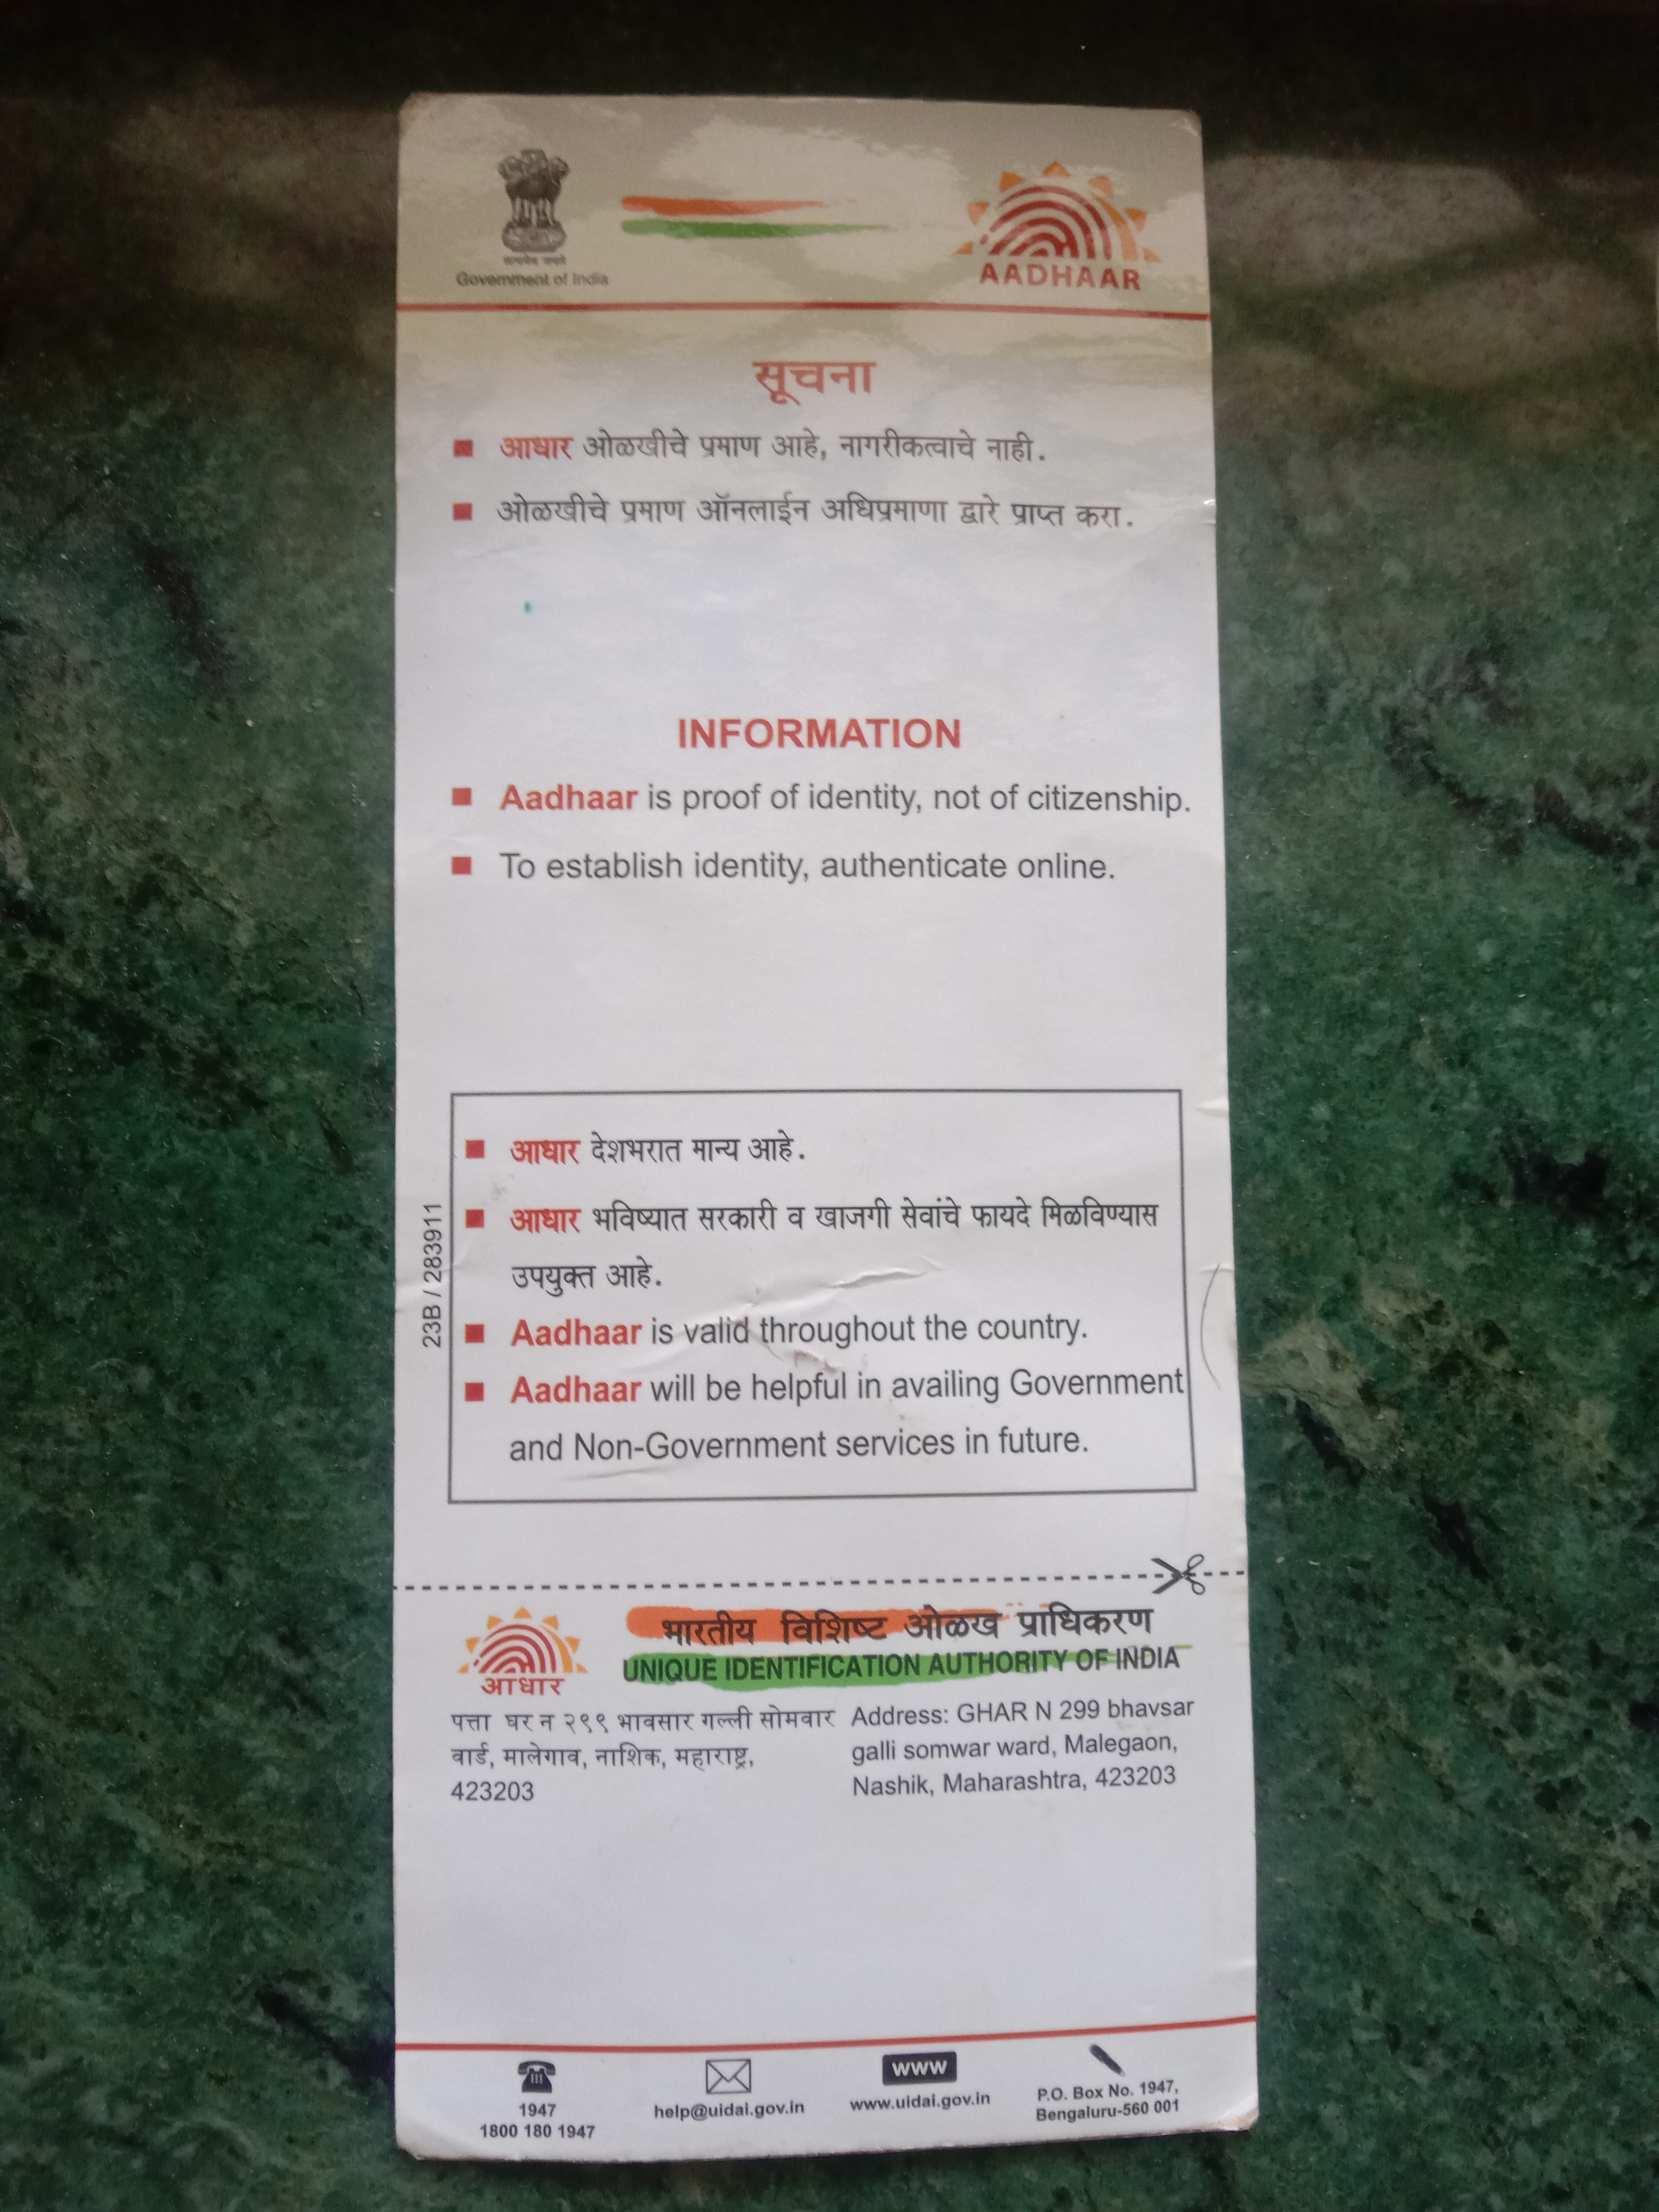 सत्यमेव जयते
Government of India
AADHAAR
सूचना
■ आधार ओळखीचे प्रमाण आहे, नागरीकत्वाचे नाही.
■ ओळखीचे प्रमाण ऑनलाईन अधिप्रमाणा द्वारे प्राप्त करा.
INFORMATION
■ Aadhaar is proof of identity, not of citizenship.
■ To establish identity, authenticate online.
■ आधार देशभरात मान्य आहे.
■ आधार भविष्यात सरकारी व खाजगी सेवांचे फायदे मिळविण्यास
उपयुक्त आहे.
■ Aadhaar is valid throughout the country.
■ Aadhaar will be helpful in availing Government
and Non-Government services in future.
23B / 283911
भारतीय विशिष्ट ओळख प्राधिकरण
UNIQUE IDENTIFICATION AUTHORITY OF INDIA
आधार
पत्ता घर न २९९ भावसार गल्ली सोमवार
वार्ड, मालेगाव, नाशिक, महाराष्ट्र,
423203
Address: GHAR N 299 bhavsar
galli somwar ward, Malegaon,
Nashik, Maharashtra, 423203
1947
1800 180 1947
help@uidai.gov.in
www
www.uidai.gov.in
P.O. Box No. 1947,
Bengaluru-560 001